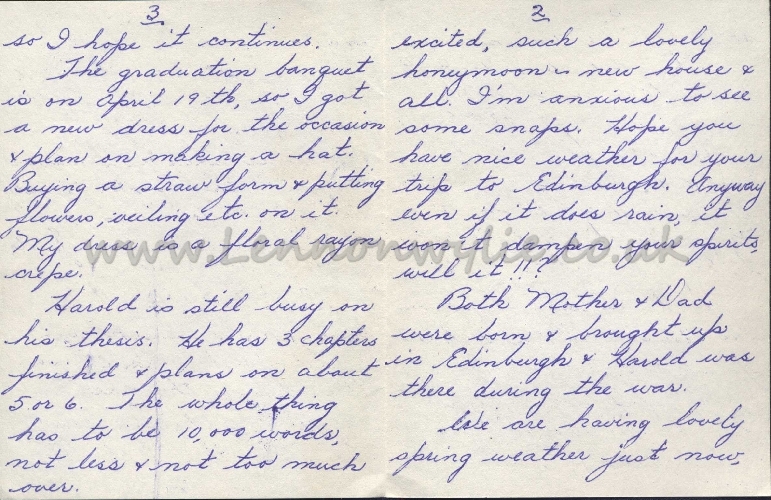 2
excited, such a lovely
honeymoon ~ new house &
all. I'm anxious to see
some snaps. Hope you
have nice weather for your
trip to Edinburgh. Anyway
even if it does rain, it
won't dampen your spirits,
will it!!?
Both Mother & Dad
were born & brought up
in Edinburgh & Harold was
there during the war.
We are having lovely
spring weather just now,
3
so I hope it continues.
The graduation banquet
is on April 19th, so I got
a new dress for the occasion
& plan on making a hat.
Buying a straw form & putting
flowers, veiling etc. on it.
My dress is a floral rayon
crêpe.
Harold is still busy on
his thesis. He has 3 chapters
finished & plans on about
5 or 6. The whole thing
has to be 10,000 words,
not less & not too much
over.
www.Lennonwylie.co.uk